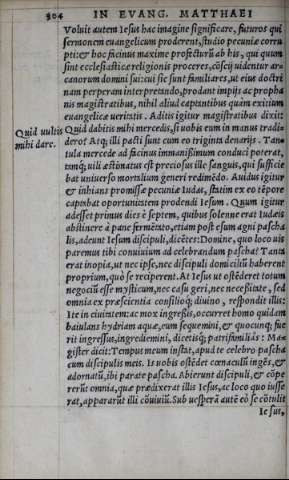 304 IN EVANG. MATTHAEI
Voluit autem Iesus hac imagine significare, futuros qui
sermonem euangelicum proderent, studio pecuniæ corru
pti: & hoc facinus maxime profecturũ ab his, qui quum
sint ecclesiasticæ religionis proceres, cõscij uidentur ar-
canorum domini sui: cui sic sunt familiares, ut eius doctri
nam perperam interpretando, prodant impijs ac propha
nis magistratibus, nihil aliud captantibus quàm exitium
euangelicæ ueritatis. Aditis igitur magistratibus dixit:
Quid uultis
mihi dare.
Quid dabitis mihi mercedis, si uobis eum in manus tradi-
dero? Atq; illi pacti sunt cum eo triginta denarijs. Tan-
tula mercede ad facinus immanissimum conduci poterat,
tamq; uili æstimatus est preciosus ille sanguis, qui suffice
bat uniuerso mortalium generi redimẽdo. Auidus igitur
& inhians promissæ pecuniæ Iudas, statim ex eo tẽpore
captabat oportunitatem prodendi Iesum. Quum igitur
adesset primus dies è septem, quibus solenne erat Iudæis
abstinere à pane fermẽtato, etiam post esum agni pascha
lis, adeunt Iesum discipuli, dicẽtes: Domine, quo loco uis
paremus tibi conuiuium ad celebrandum pascha? Tanta
erat inopia, ut nec ipse, nec discipuli domicilũ haberent
proprium, quò se reciperent. At Iesus ut ostẽderet totum
negociũ esse mysticum, nec casu geri, nec necessitate, sed
omnia ex præscientia consilioq; diuino, respondit illis:
Ite in ciuitatem: ac mox ingressis, occurret homo quidam
baiulans hydriam aquæ, eum sequemini, & quocunq; fue
rit ingressus, ingrediemini, dicetisq; patrifamiliâs: Ma-
gister dicit: Tempus meum instat, apud te celebro pascha
cum discipulis meis. Is uobis ostẽdet cœnaculũ ingẽs, &
adornatũ, ibi parate pascha. Abierunt discipuli, & cõpe
rerũt omnia, quæ prædixerat illis Iesus, ac loco quo iusse
rat, apparãrũt illi cõuiuiũ. Sub uesperã autẽ eò se cõtulit
Iesus,